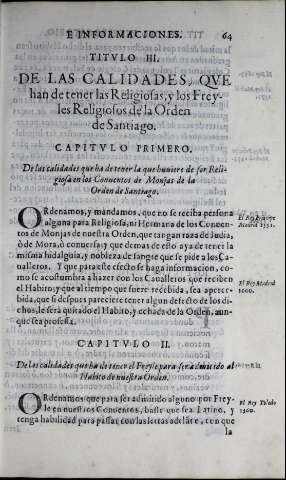 E INFORMACIONES.
64
TITVLO III.
DE LAS CALIDADES, QVE
han de tener las Religiosas, y los Frey-
les Religiosos de la Orden
de Santiago.
CAPITVLO PRIMERO.
De las calidades que ha de tener la que huuiere de ser Reli-
giosa en los Conuentos de Monjas de la
Orden de Santiago.
Ordenamos, y mandamos, que no se reciba persona
alguna para Religiosa, ni Hermana de los Conuen-
tos de Monjas de nuestra Orden, que tan raza de Iudia,
ò de Mora, ò conuersa; y que demas de esto aya de tener la
misma hidalguia, y nobleza de sangre que se pide a los Ca-
ualleros. Y que para este efecto se haga informacion, co-
mo se acostumbra a hazer con los Caualleros que reciben
el Habito; y que al tiempo que fuere recebida, sea aperce-
bida, que si despues pareciere tener algun defecto de los di-
chos, le serà quitado el Habito, y echada de la Orden, aun-
que sea professa.
Madrid 1551.
El Rey Madrid
1600.
CAPITVLO II.
De las calidades que ha de tener el Freyle para ser admitido al
Habito de nuestra Orden.
Ordenamos que para ser admitido alguno por Frey-
le en nuestros Conuentos, baste que sea Latino, y
tenga habilidad para passar con las letras adelãte, con que
El Rey Toledo
1560.
la